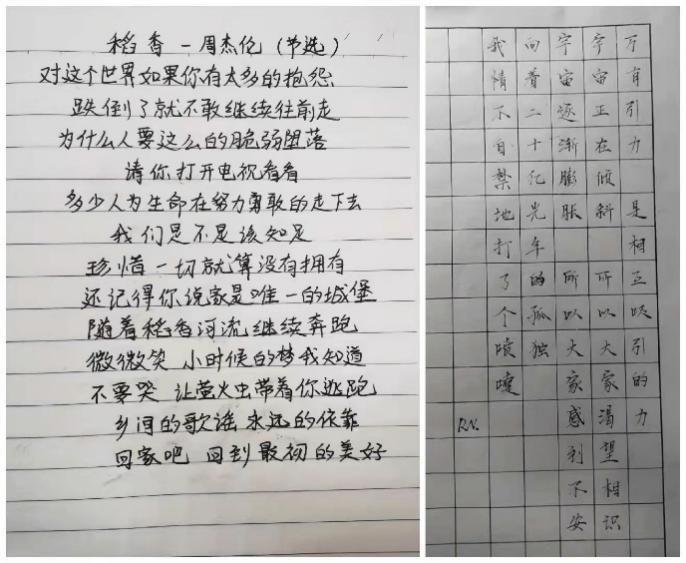 稻香－周杰伦（节选）
对这个世界如果你有太多的抱怨
跌倒了就不敢继续往前走
为什么人要这么的脆弱堕落
请你打开电视看看
多少人为生命在努力勇敢的走下去
我们是不是该知足
珍惜一切就算没有拥有
还记得你说家是唯一的城堡
随着稻香河流继续奔跑
微微笑 小时候的梦我知道
不要哭 让萤火虫带着你逃跑
乡间的歌谣 永远的依靠
回家吧 回到最初的美好
万有引力 是相互吸引的力
宇宙正在倾斜 所以大家渴望相识
宇宙逐渐膨胀 所以大家感到不安
向着二十亿光年的孤独
我情不自禁地打了个喷嚏
RN.